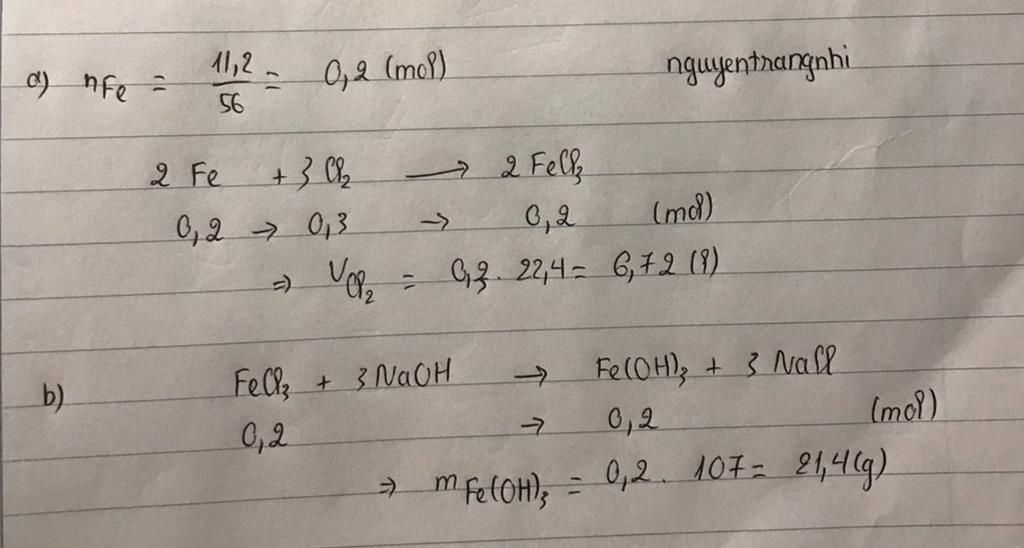 a) nFe = 11,2/56 = 0,2 (mol) nguyentrangnhi
2 Fe + 3 Cl₂ ⟶ 2 FeCl₃
0,2 → 0,3 → 0,2 (mol)
⇒ VCl₂ = 0,3 . 22,4 = 6,72 (l)
b) FeCl₃ + 3 NaOH → Fe(OH)₃ + 3 NaCl
0,2 → 0,2 (mol)
⇒ mFe(OH)₃ = 0,2 . 107 = 21,4 (g)